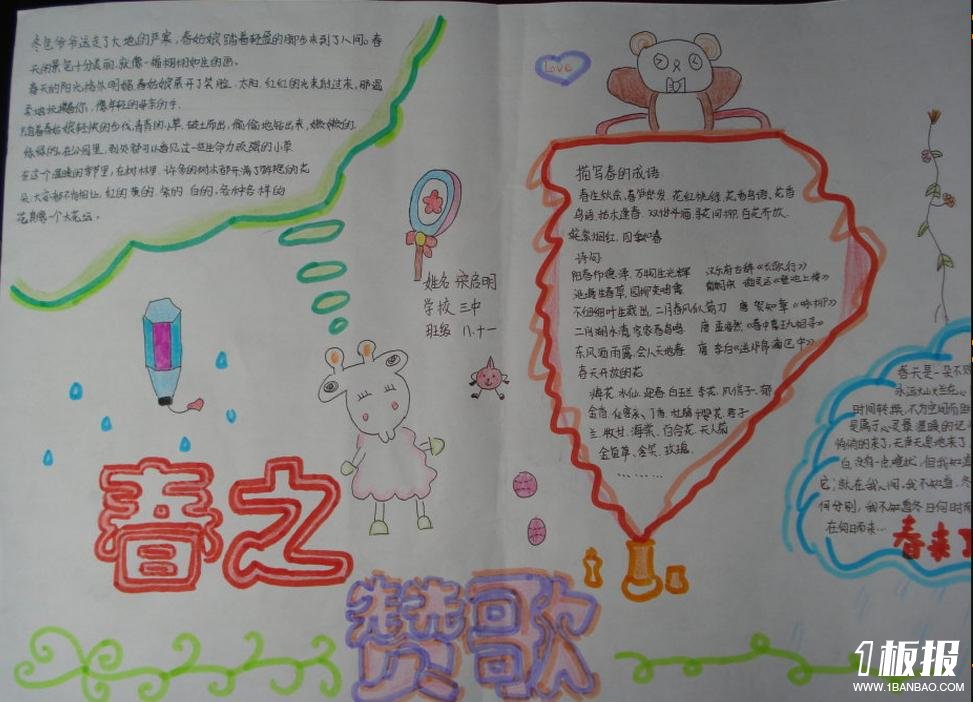 冬色爷爷送走了大地的严寒，春姑娘踏着轻盈的脚步来到了人间。春
天的景色十分美丽，就像一幅栩栩如生的画。
春天的阳光格外明媚，春姑娘展开了笑脸，太阳，红红的光束射过来，那温
柔地抚摸你，像年轻的母亲的手。
随着春姑娘轻快的步伐，青青的小草，破土而出，偷偷地钻出来，嫩嫩的，
绿绿的。在公园里，到处都可以看见这一些生命力顽强的小草
在这个温暖的季节里，在树林里，许多的树木都开满了鲜艳的花
朵，大家都不甘相让，红的 黄的 紫的 白的，各种各样的
花真像一个大花坛。
Love
姓名 宋启明
学校 三中
班级 八.十一
描写春的成语
春生秋杀、春笋怒发、花红柳绿、花香鸟语、花香
鸟语、枯木逢春、双柑斗酒、寻花问柳、百花齐放、
姹紫嫣红、四季如春
诗句
阳春布德泽，万物生光辉 汉乐府古辞《长歌行》
池塘生春草，园柳变鸣禽 南朝宋 谢灵运《登池上楼》
不知细叶谁裁出，二月春风似剪刀 唐 贺知章《咏柳》
二月湖水清，家家春鸟鸣 唐 孟浩然《春中喜王九相寻》
东风洒雨露，会入天地春 唐 李白《送郄昂谪巴中》
春天开放的花
梅花、水仙、迎春、白玉兰、李花、风信子、郁
金香、丁香、杜鹃、樱花、君子
兰、牡丹、海棠、百合花、天人菊
金鱼草、含笑、玫瑰、
………
春天是一朵不
永远灿烂在心
时间转换，不为空间而
是属于心灵最温暖的记
悄悄的来了，无声无息地来了
白，没有一点喧扰，但我知道
它；就在我人间，我不知道，冬
何分别，我不知道冬日何时
在何日而来…
春来了
春之
赞歌
1板报
WWW.1BANBAO.COM